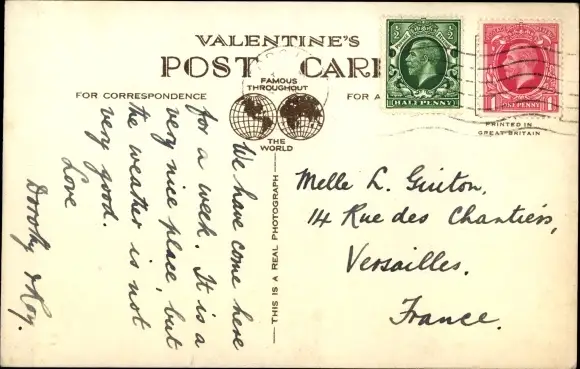 VALENTINE'S
POST CAR
FAMOUS
THROUGHOUT
THE
WORLD
FOR CORRESPONDENCE
FOR A
½ ½
HALFPENNY
1 1
ONE PENNY
PRINTED IN
GREAT BRITAIN
THIS IS A REAL PHOTOGRAPH
We have come here
for a week. It is a
very nice place, but
the weather is not
very good.
Love
Dorothy & Roy.
Melle L.
14 Rue des Chantiers,
Versailles.
France.